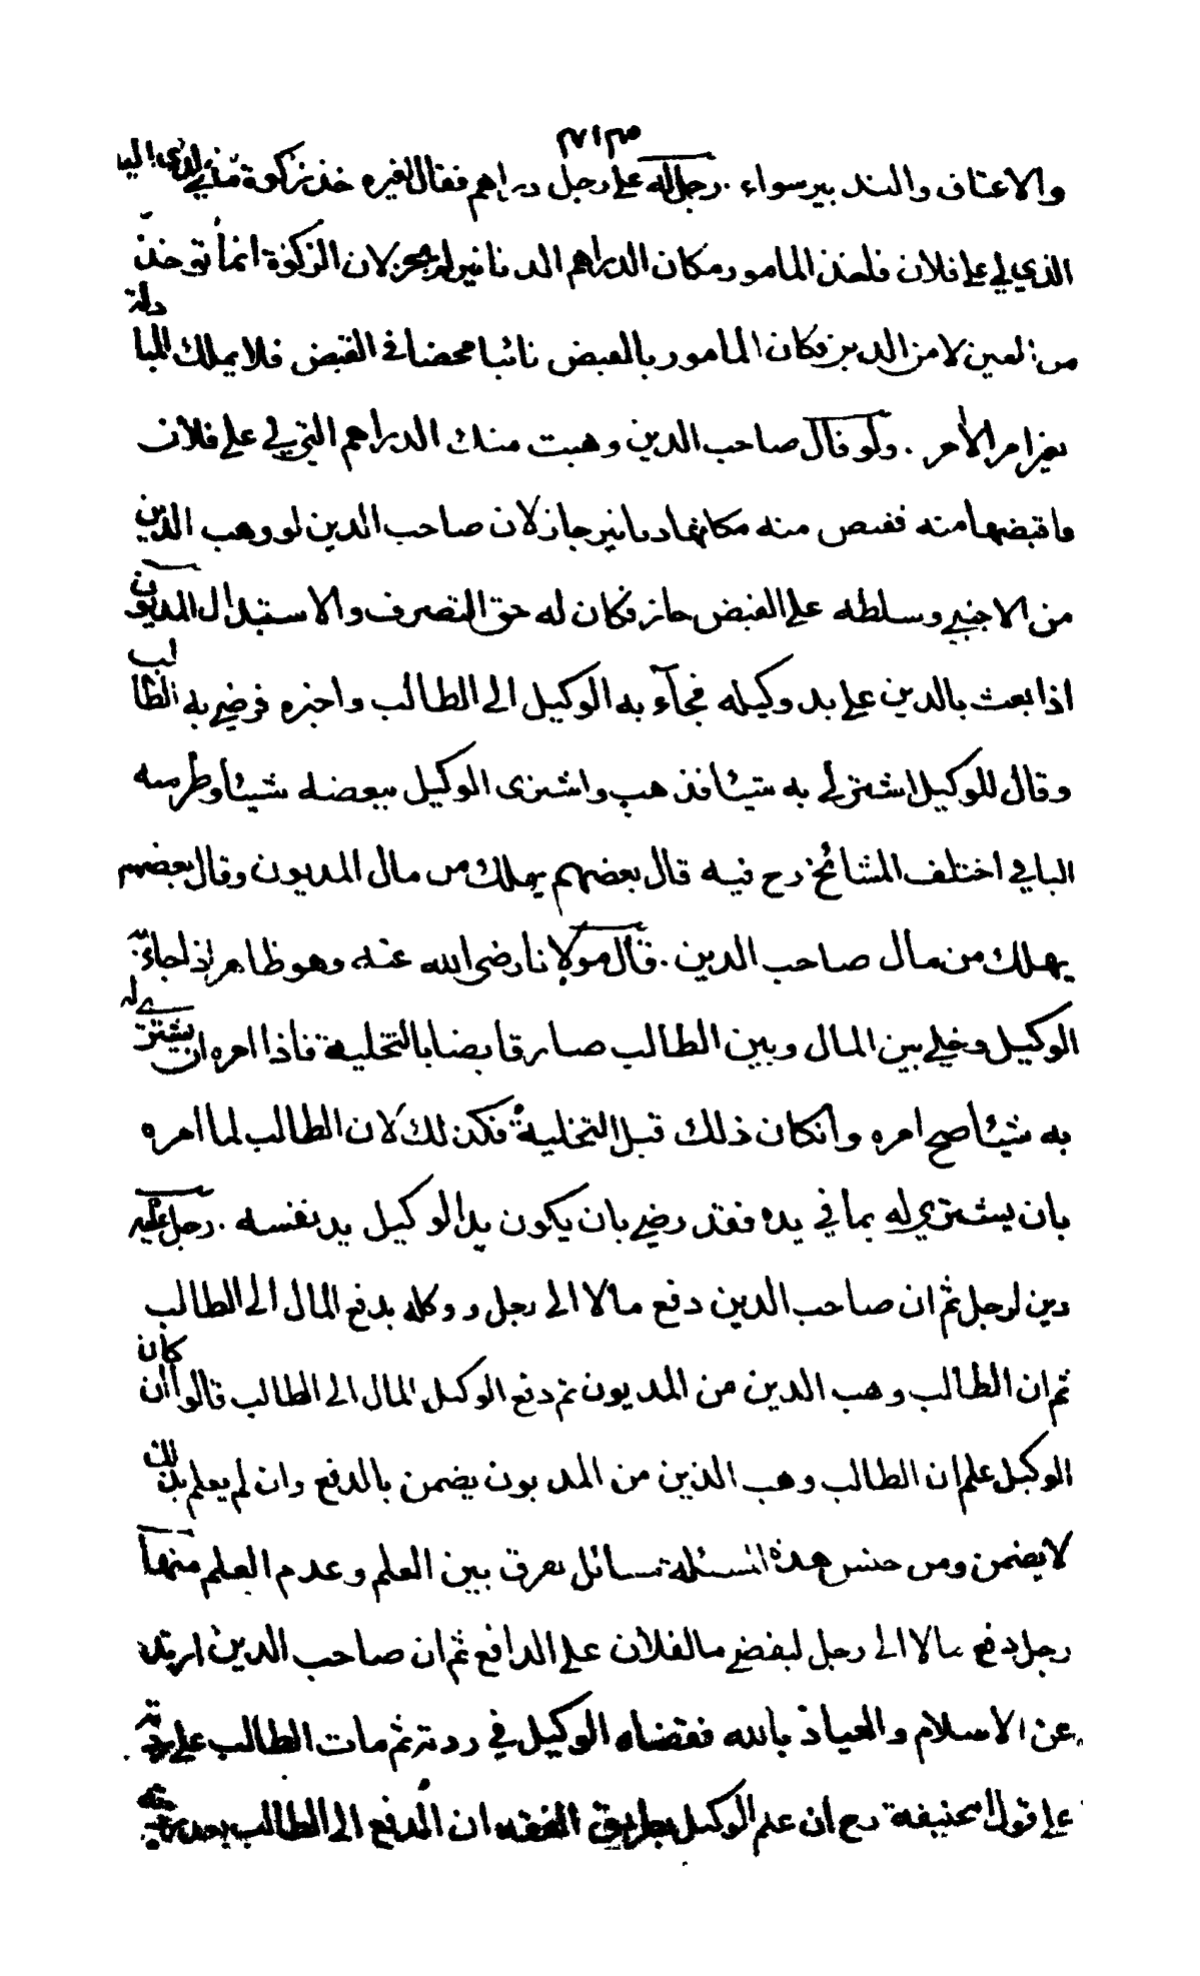 والاعتاق والتدبير سواء . رجل له على رجل دراهم فقال لغيره خذ زكوة مالي
الذي لي على فلان فاخذ المامور مكان الدراهم الدنانير لم يجز لان الزكوة انما توخذ
من العين لا من الدين فكان المامور بالقبض نائبا محضا في القبض فلا يملك المبادلة
بغير امر الأمر . ولو قال صاحب الدين وهبت منك الدراهم التي لي على فلان
فاقبضها منه فقبض منه مكانها دنانير جاز لان صاحب الدين لو وهب الدين
من الاجنبي وسلطه على القبض جاز فكان له حق التصرف والاستبدال المديون
اذا بعث بالدين على يد وكيله فجآء به الوكيل الى الطالب واخبره فرضي به الطالب
وقال للوكيل اشتر لي به شيئا فذهب واشترى الوكيل ببعضه شيئا وطر منه
الباقي اختلف المشائخ رح فيه قال بعضهم يهلك من مال المديون وقال بعضهم
يهلك من مال صاحب الدين . قال مولانا رضى الله عنه وهو ظاهر اذا جاء به
الوكيل وخلي بين المال وبين الطالب صار قابضا بالتخلية فاذا امره ان يشتري له
به شيئا صح امره وانكان ذلك قبل التخلية فكذلك لان الطالب لما امره
بان يشتري له بما في يده فقد رضي بان يكون يد الوكيل يد نفسه . رجل عليه
دين لرجل ثم ان صاحب الدين دفع مالا الى رجل ووكله بدفع المال الى الطالب
ثم ان الطالب وهب الدين من المديون ثم دفع الوكيل المال الى الطالب قالوا ان كان
الوكيل علم ان الطالب وهب الدين من المديون يضمن بالدفع وان لم يعلم بذلك
لا يضمن ومن جنس هذه المسئلة مسائل تفرق بين العلم وعدم العلم منها
رجل دفع مالا الى رجل ليقضي مالفلان على الدافع ثم ان صاحب الدين ارتد
عن الاسلام والعياذ بالله فقضاه الوكيل في ردته ثم مات الطالب على ردته
على قول ابيحنيفة رح ان علم الوكيل بطريق الفقه ان الدفع الى الطالب بعد ردته